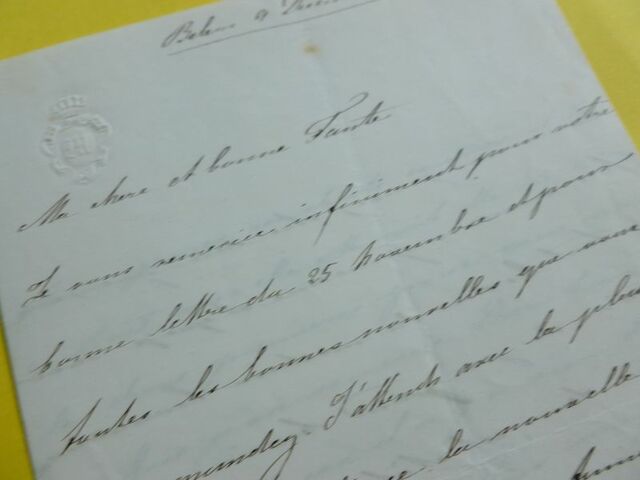 Belem 9
Ma chere et bonne Tante
Je vous remercie infiniment pour votre
bonne lettre du 25 Novembre et pour
toutes les bonnes nouvelles que vous
mandez. J'attends avec la plus
la nouvelle